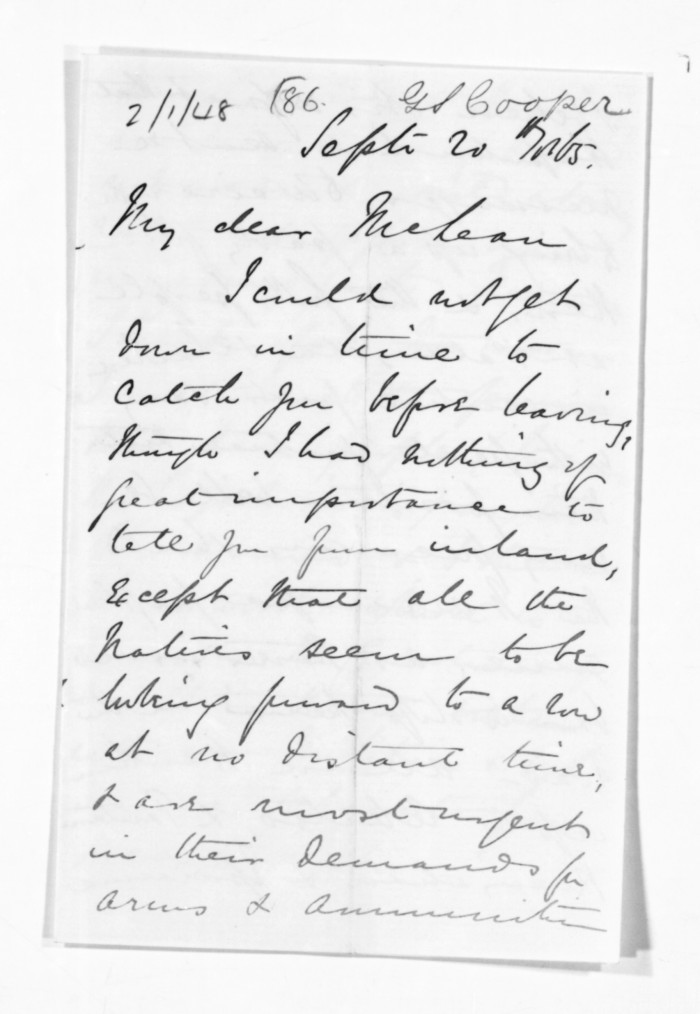 2/1/48 186. GS Cooper
Septr 20th /65.
My dear McLean
I could not get
down in time to
catch you before leaving,
though I had nothing of
great importance to
tell you from inland,
Except that all the
Natives seem to be
looking forward to a row
at no distant time,
& are most urgent
in their demands for
arms & ammunition